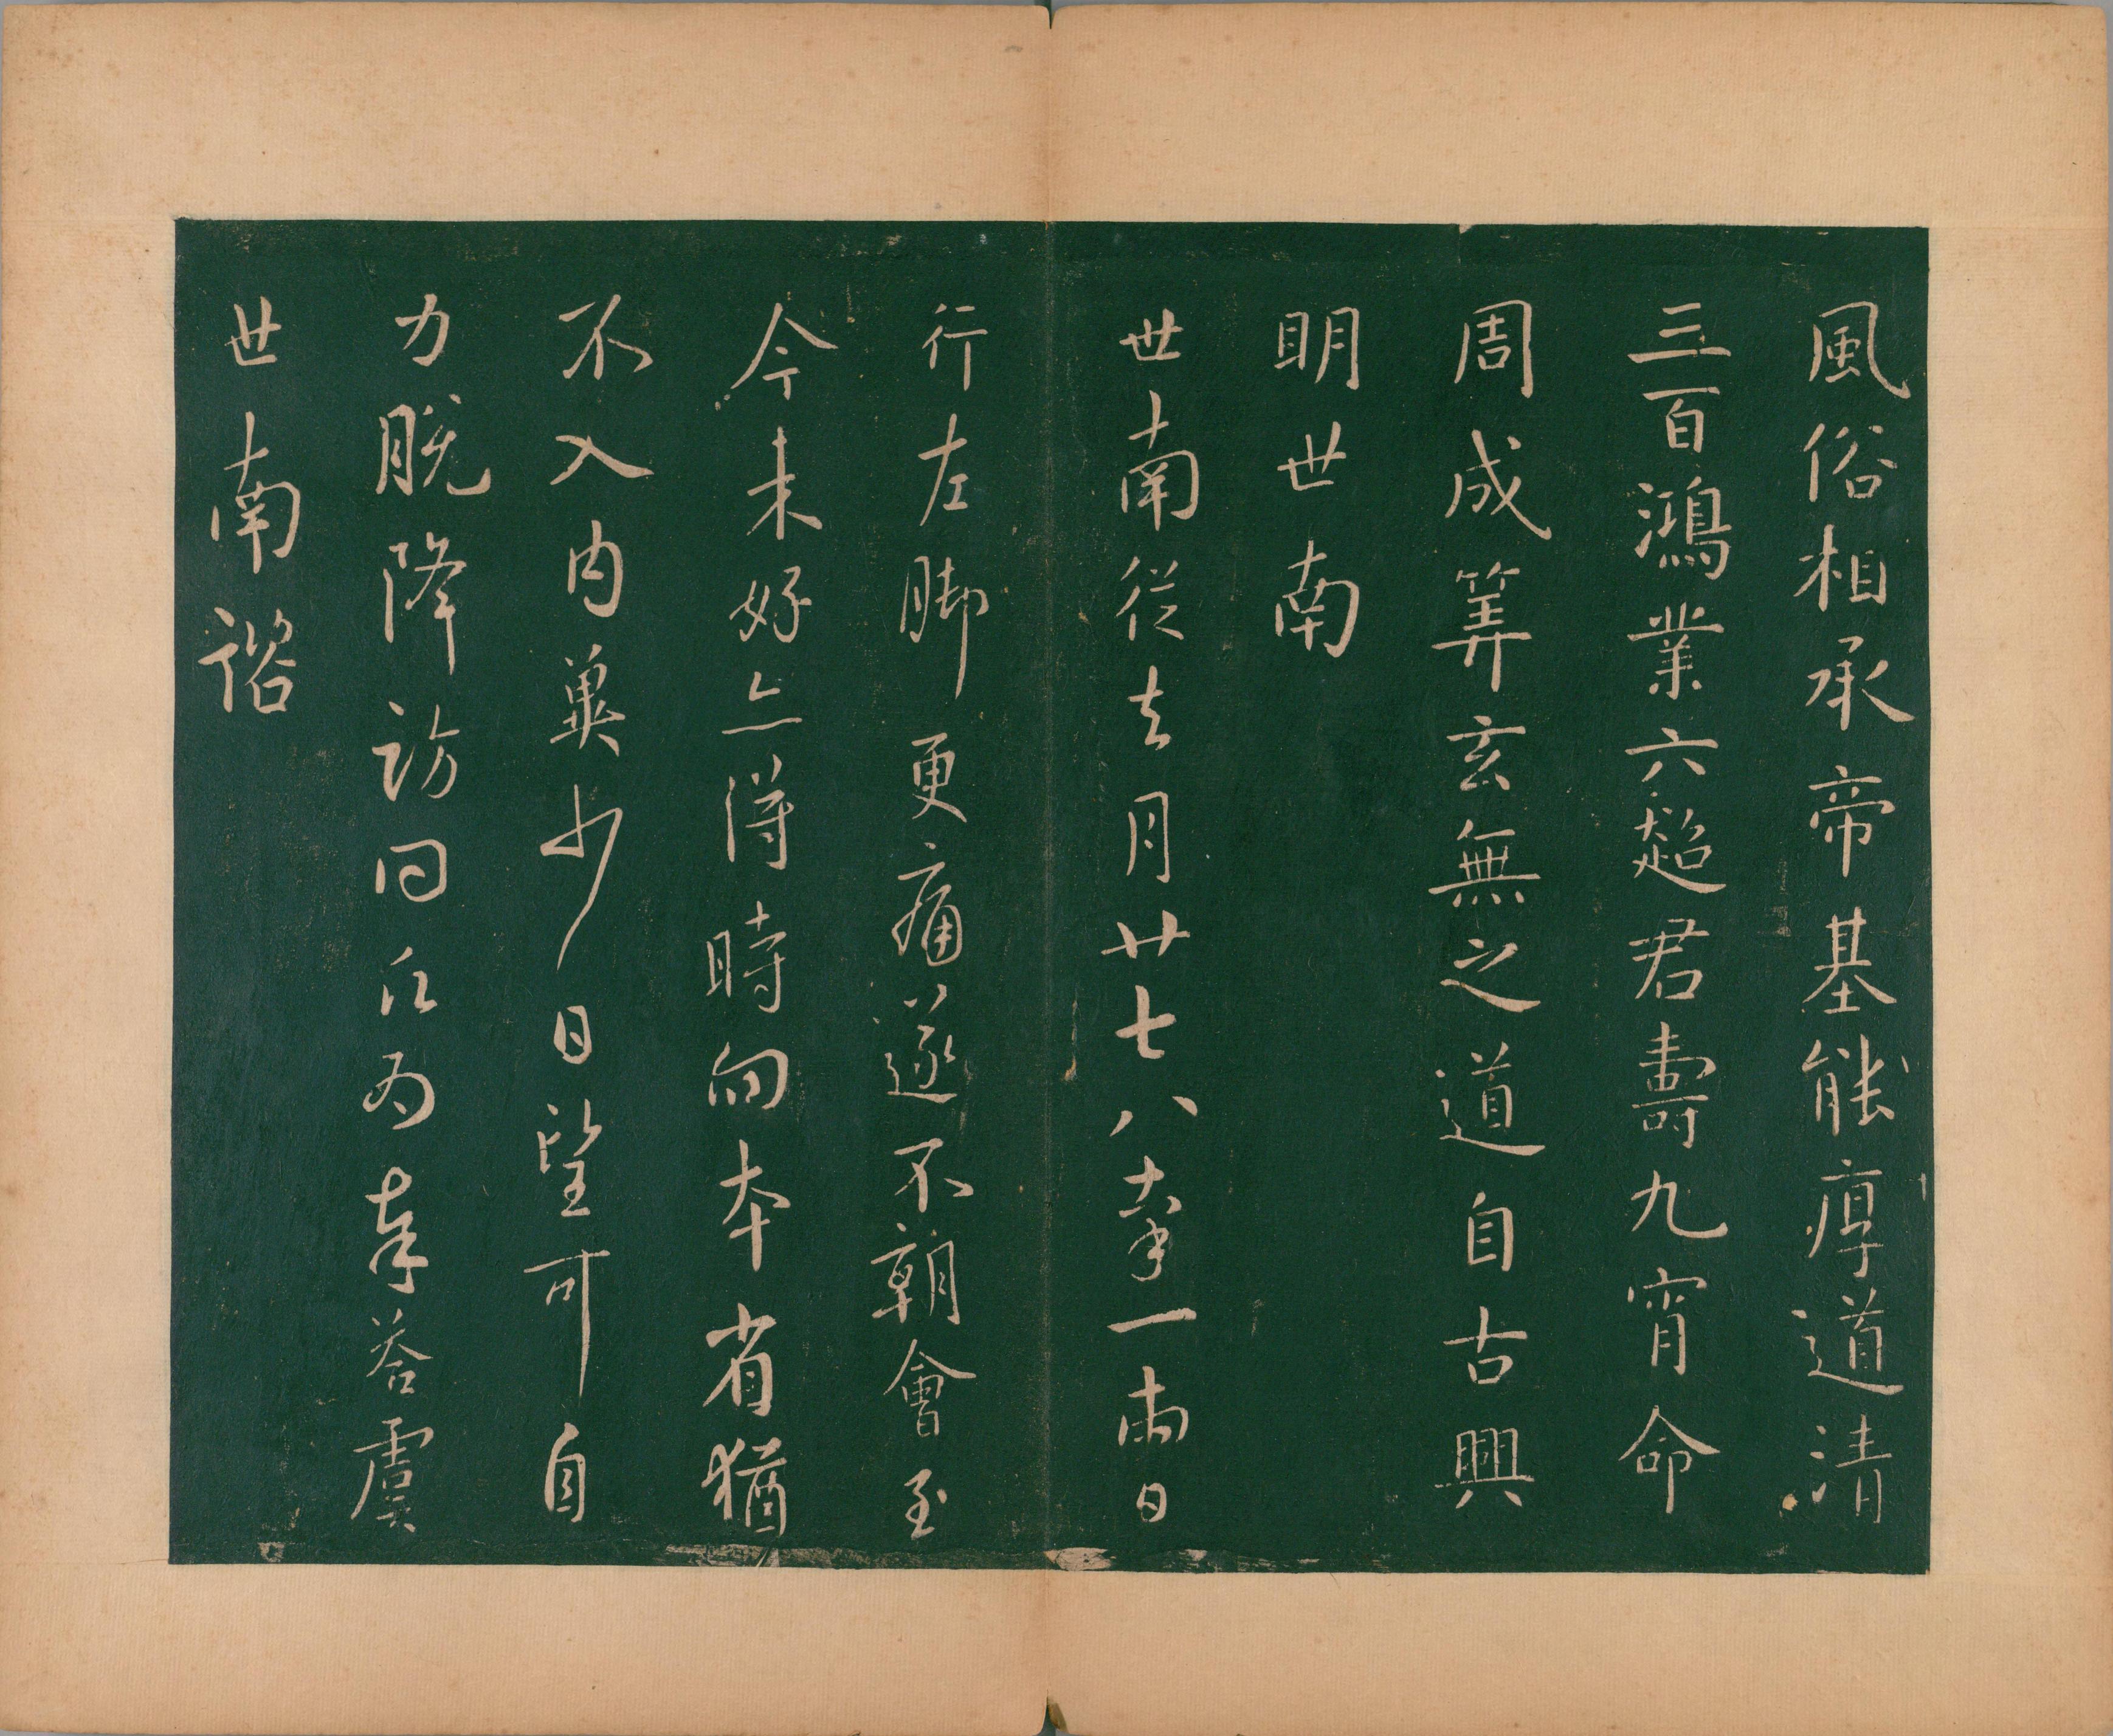 風俗相承帝基能厚道清
三百鴻業六超君壽九宵命
周成筭玄無之道自古興
明世南
世南從去月廿七八率一兩日
行左脚更痛遂不朝會至
今未好亦得時向本省猶
不入内冀少日望可自
力脱降訪問欣為奉荅虞
世南諮